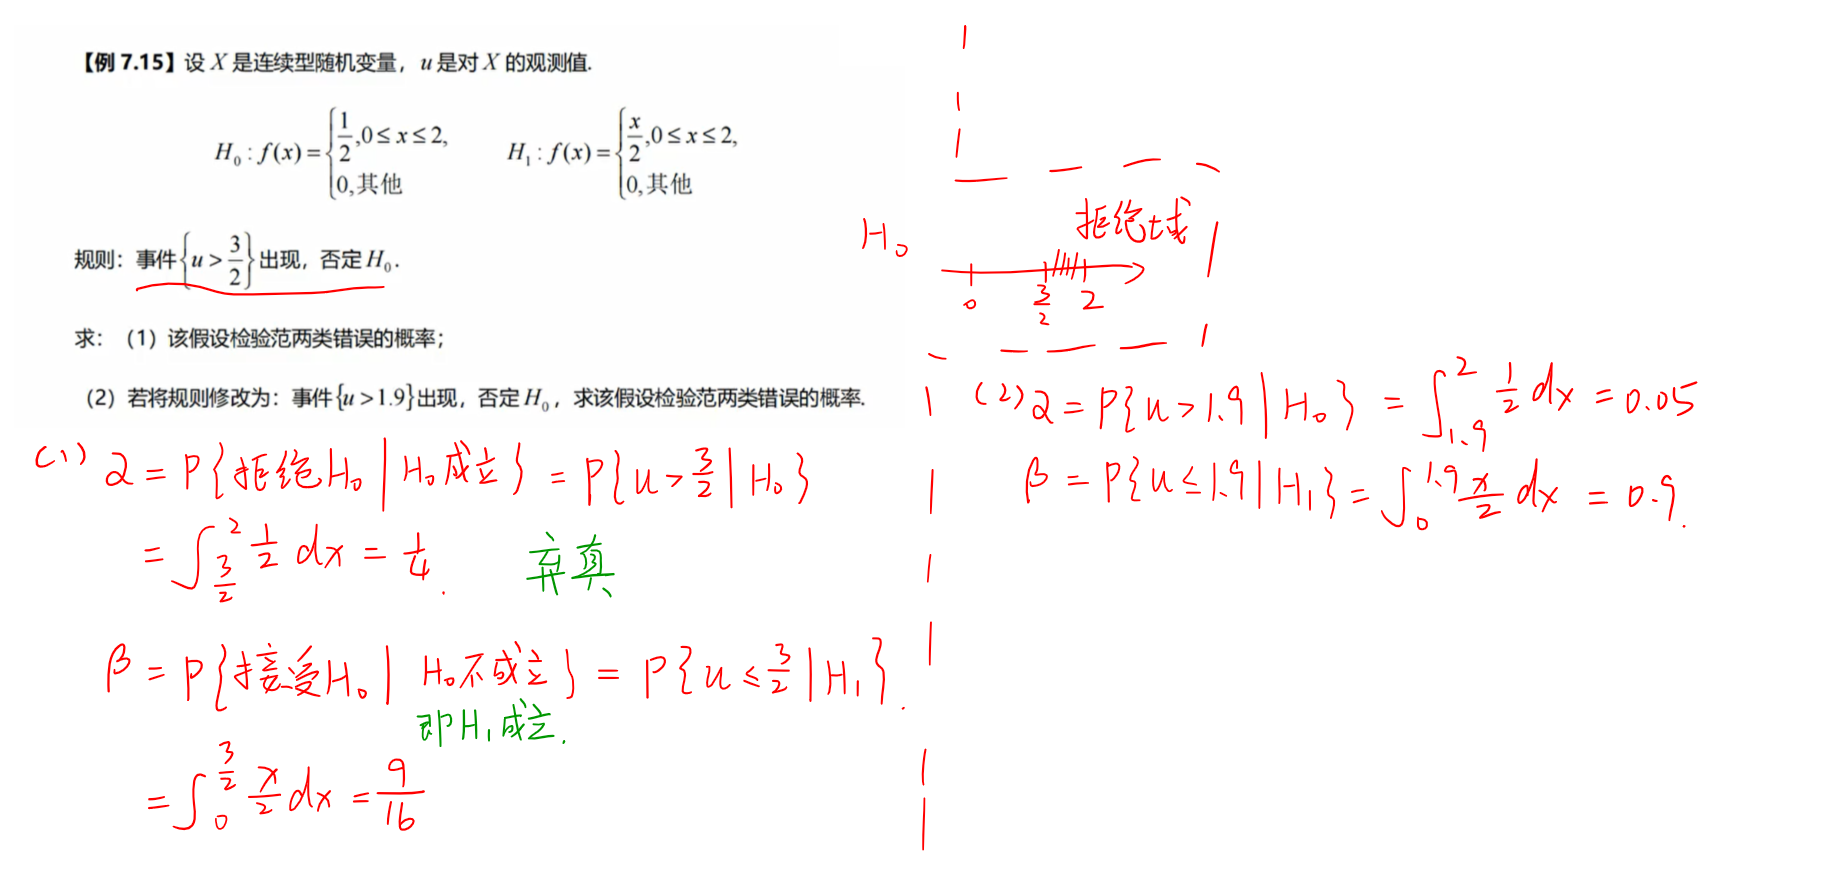 【例 7.15】设 X 是连续型随机变量，u 是对 X 的观测值.
H₀ : f(x) = { 1/2, 0 ≤ x ≤ 2, 0, 其他    H₁ : f(x) = { x/2, 0 ≤ x ≤ 2, 0, 其他
规则：事件{u > 3/2}出现，否定 H₀.
求：（1）该假设检验范两类错误的概率；
（2）若将规则修改为：事件{u > 1.9}出现，否定 H₀，求该假设检验范两类错误的概率.
(1) α = P{拒绝H₀ | H₀成立} = P{u > 3/2 | H₀}
= ∫_{3/2}^{2} 1/2 dx = 1/4.    弃真
β = P{接受H₀ | H₀不成立} = P{u ≤ 3/2 | H₁}.
即H₁成立.
= ∫_{0}^{3/2} x/2 dx = 9/16
拒绝域
H₀
0 3/2 2
(2) α = P{u > 1.9 | H₀} = ∫_{1.9}^{2} 1/2 dx = 0.05
β = P{u ≤ 1.9 | H₁} = ∫_{0}^{1.9} x/2 dx = 0.9.